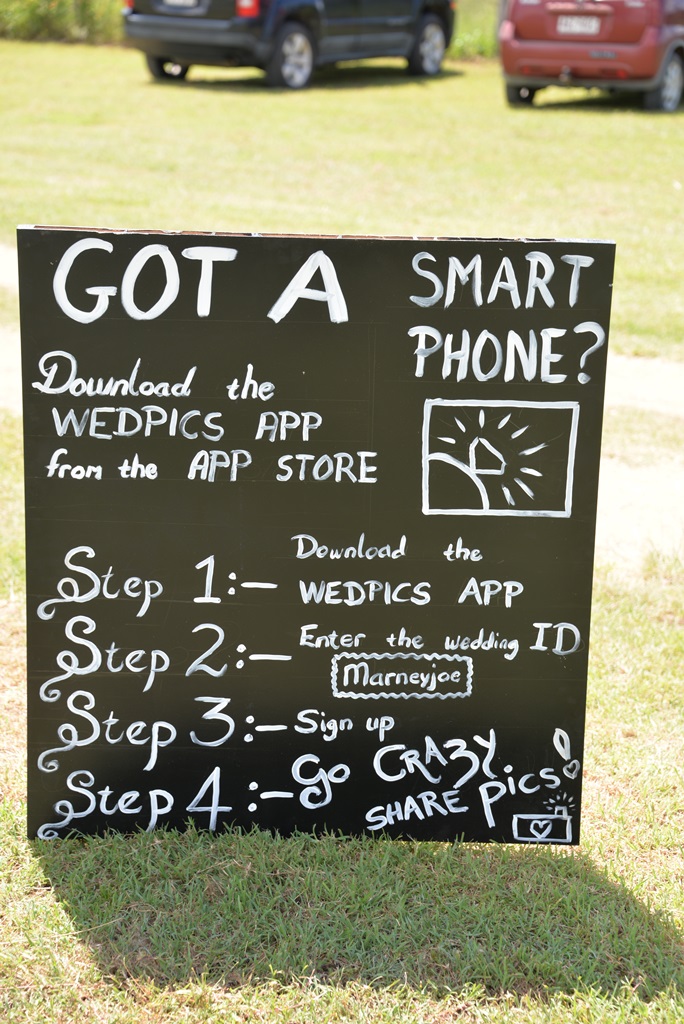 GOT A SMART
PHONE?
Download the
WEDPICS APP
from the APP STORE
Step 1:— Download the
WEDPICS APP
Step 2:— Enter the wedding ID
Marneyjoe
Step 3:— Sign up
Step 4:— Go CRAZY.
SHARE pics!